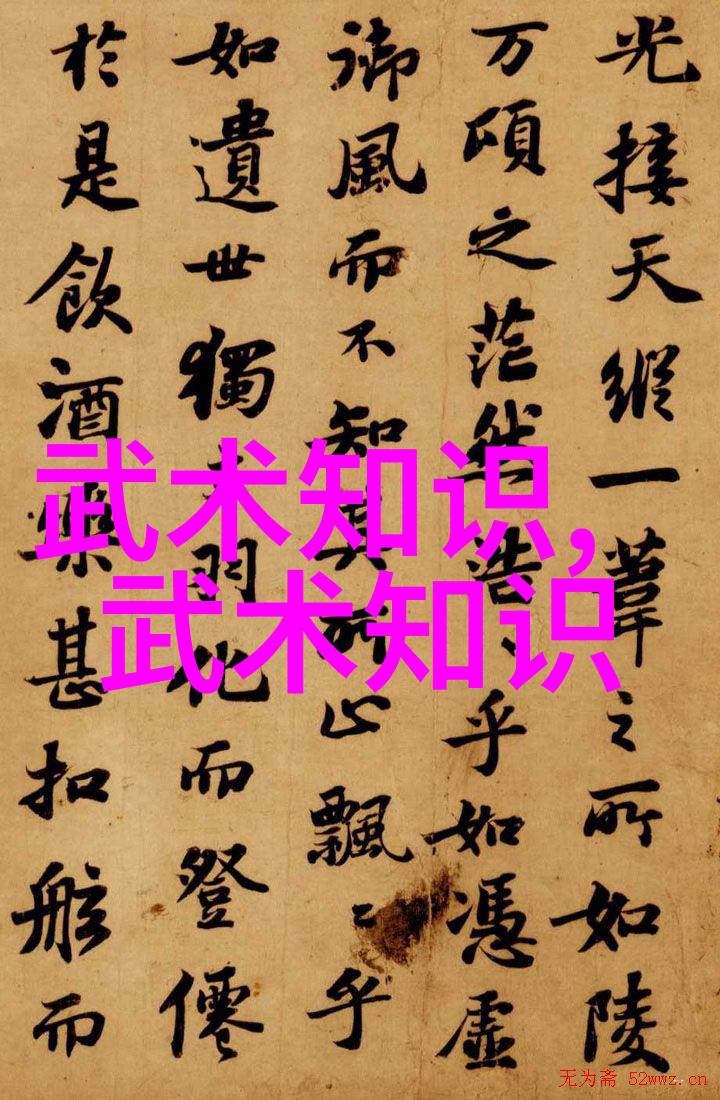 光接天縱一葦之所如陵
万頃之茫然浩〻乎如憑虛
御風而不知其所止飄〻乎
如遺世獨立羽化而登僊
於是飲酒樂甚扣舷而
武术知识,
武术知识
无为斋 52wwz.cn